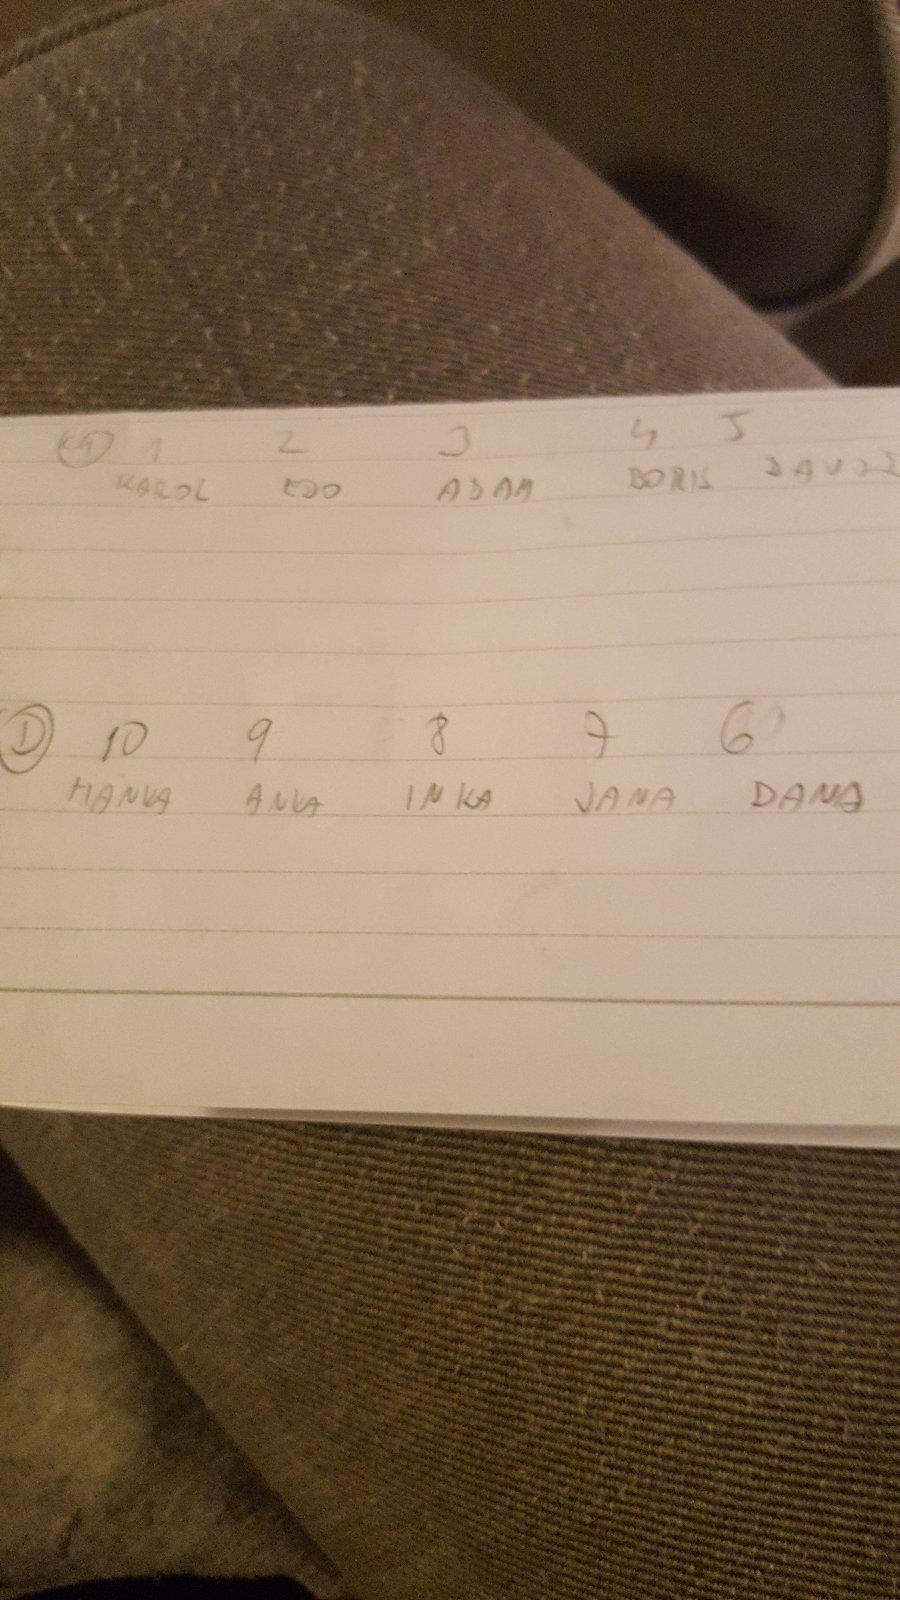 1 2 3 4 5
KAROL EDO ADAM BORIS DAVID
D 10 9 8 7 6
HANKA ANKA INKA JANA DANA